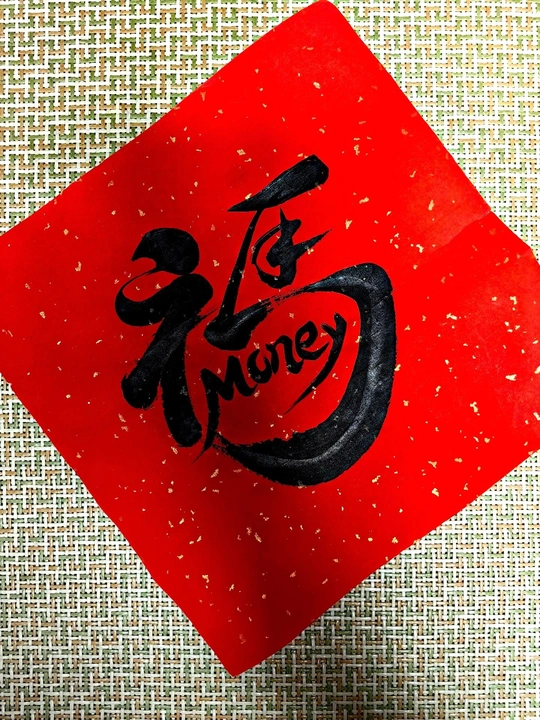 福
Money